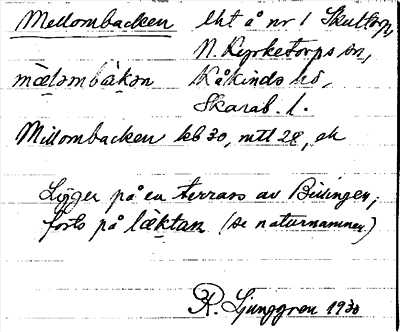 Mellombacken lht å nr 1 Skultorp,
N. Kyrketorps sn,
mælɔmbàkən Kåkinds hd,
Skarab. l.
Millombacken kb 30, mtl 28, ek
Ligger på en terrass av Billingen;
forts på läktan (se naturnamnen)
R. Ljunggren 1930